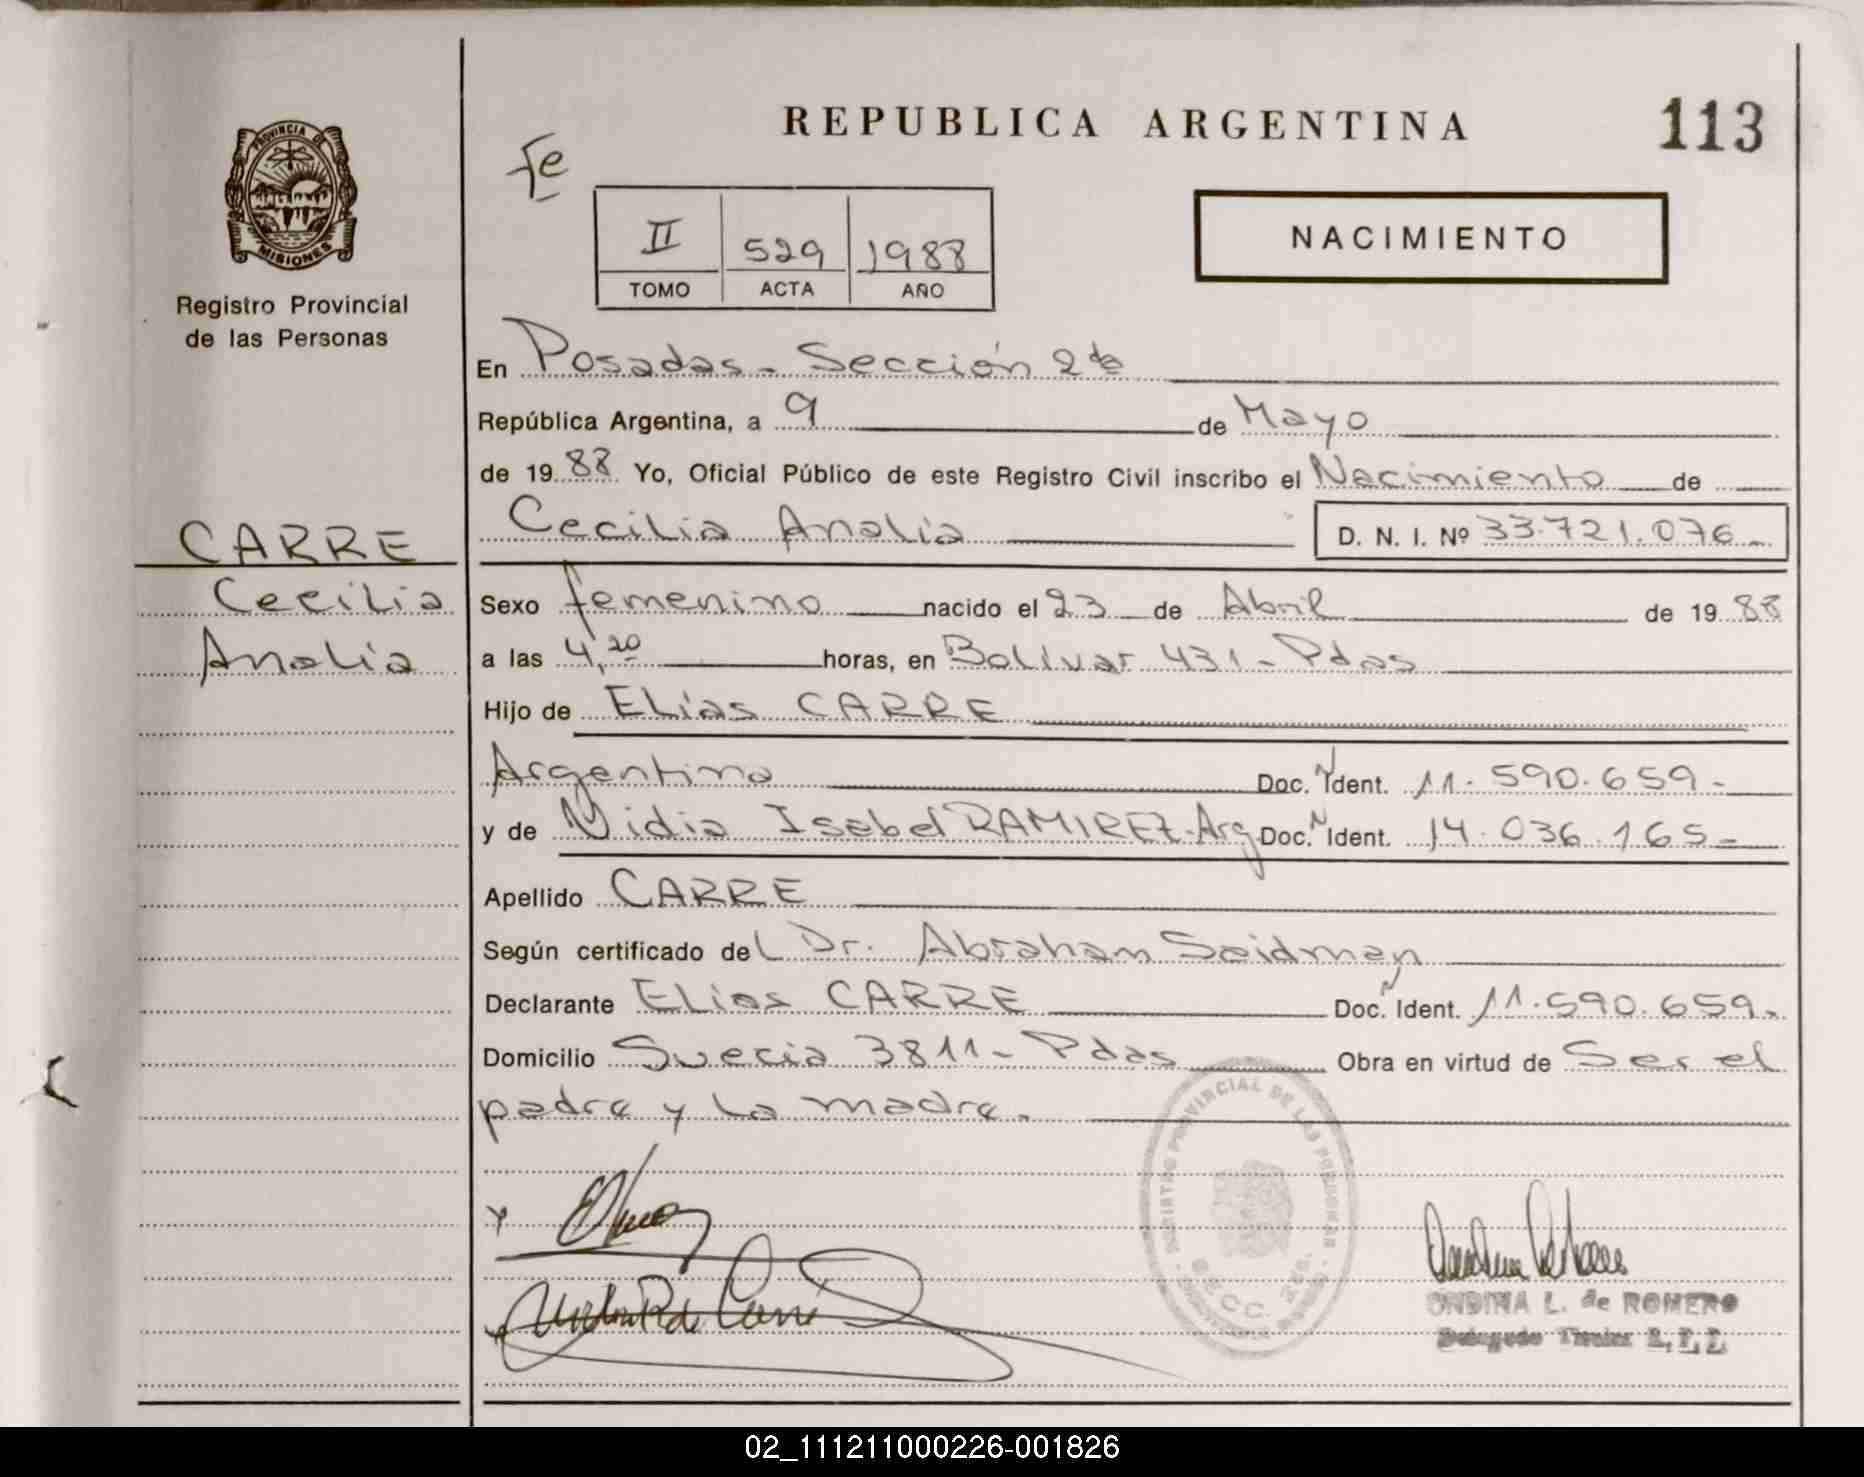 REPUBLICA ARGENTINA
113
PROVINCIA DE
MISIONES
Registro Provincial
de las Personas
Fe
II 529 1988
TOMO ACTA AÑO
NACIMIENTO
En Posadas - Sección 2da
República Argentina, a 9 de Mayo
de 1988 Yo, Oficial Público de este Registro Civil inscribo el Nacimiento de
Cecilia Analia D. N. I. Nº 33.721.076-
CARRE
Cecilia
Analia
Sexo femenino nacido el 23 de Abril de 1988
a las 4,20 horas, en Bolívar 431 - Pdas
Hijo de Elías CARRE
Argentino Doc. N Ident. 11.590.659-
y de Nidia Isabel RAMIREZ-Arg Doc. N Ident. 14.036.165-
Apellido CARRE
Según certificado del Dr. Abraham Seidman
Declarante Elías CARRE Doc. N Ident. 11.590.659-
Domicilio Suecia 3811 - Pdas Obra en virtud de Ser el
padre y la madre.
REGISTRO PROVINCIAL DE LAS PERSONAS
ONDINA L. de ROMERO
Delegado Titular R.P.P.
02_111211000226-001826